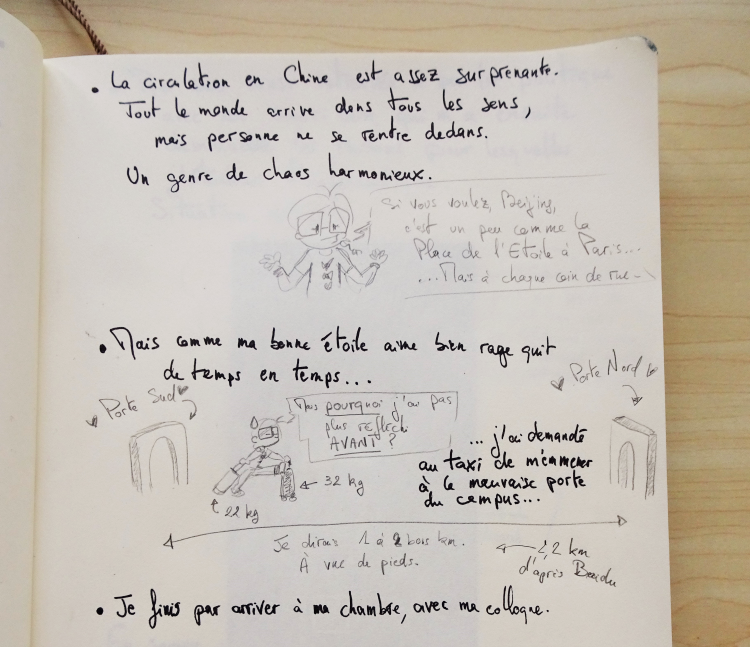 • La circulation en Chine est assez surprenante.
Tout le monde arrive dans tous les sens,
mais personne ne se rentre dedans.
Un genre de chaos harmonieux.
Si vous voulez, Beijing,
c'est un peu comme la
Place de l'Etoile à Paris...
...Mais à chaque coin de rue~
• Mais comme ma bonne étoile aime bien rage quit
de temps en temps...
♥ Porte Sud ♥
♥ Porte Nord ♥
Mais pourquoi j'ai pas
plus réfléchi
AVANT ?
... j'ai demandé
au taxi de m'emmener
à la mauvaise porte
du campus...
← 32 kg
22 kg
Je dirais 1 à 2 bons km.
À vue de pieds.
← 2,2 km
d'après Baidu
• Je finis par arriver à ma chambre, avec ma colloque.